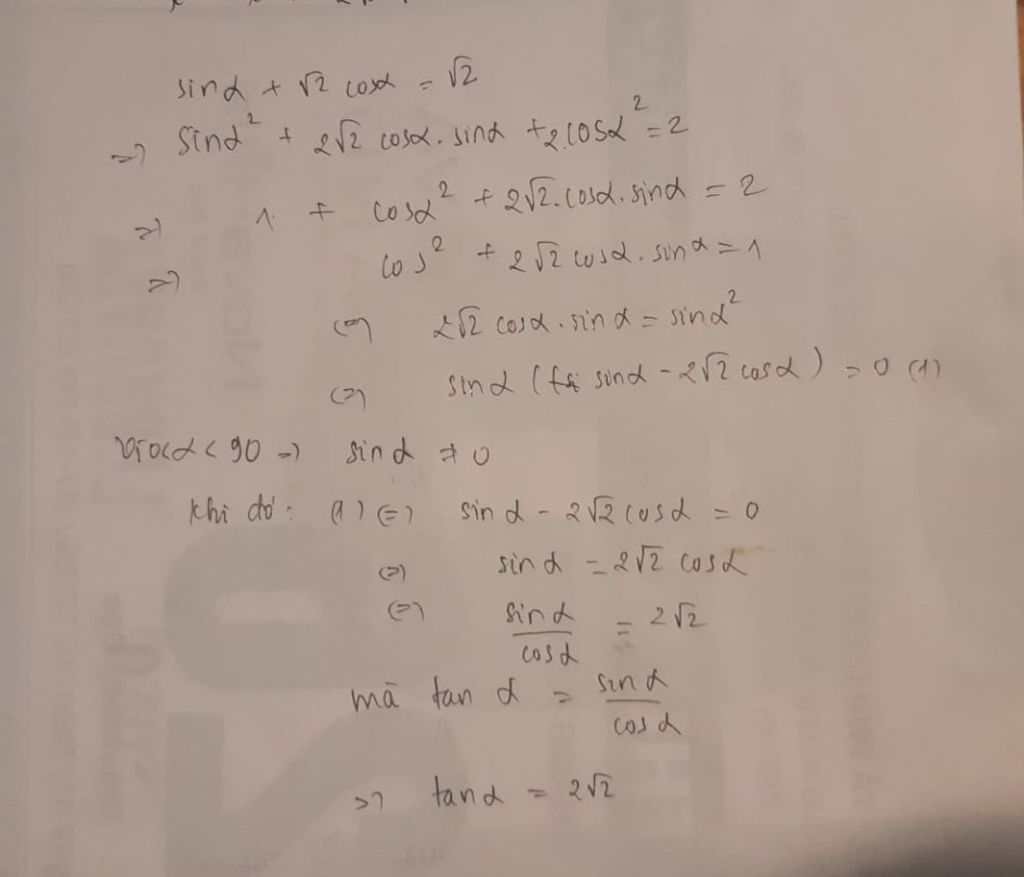 sinα + √2 cosα = √2
=> Sinα² + 2√2 cosα. sinα + 2.cosα² = 2
=> 1 + cosα² + 2√2.cosα.sinα = 2
=> cos² + 2√2 cosα. sinα = 1
<=> 2√2 cosα. sinα = sinα²
<=> sinα ( sinα - 2√2 cosα ) = 0 (1)
Vì 0<α < 90 => sinα ≠ 0
Khi đó: (1) <=> sinα - 2√2 cosα = 0
<=> sinα = 2√2 cosα
<=> sinα / cosα = 2√2
mà tan α = sinα / cosα
=> tanα = 2√2